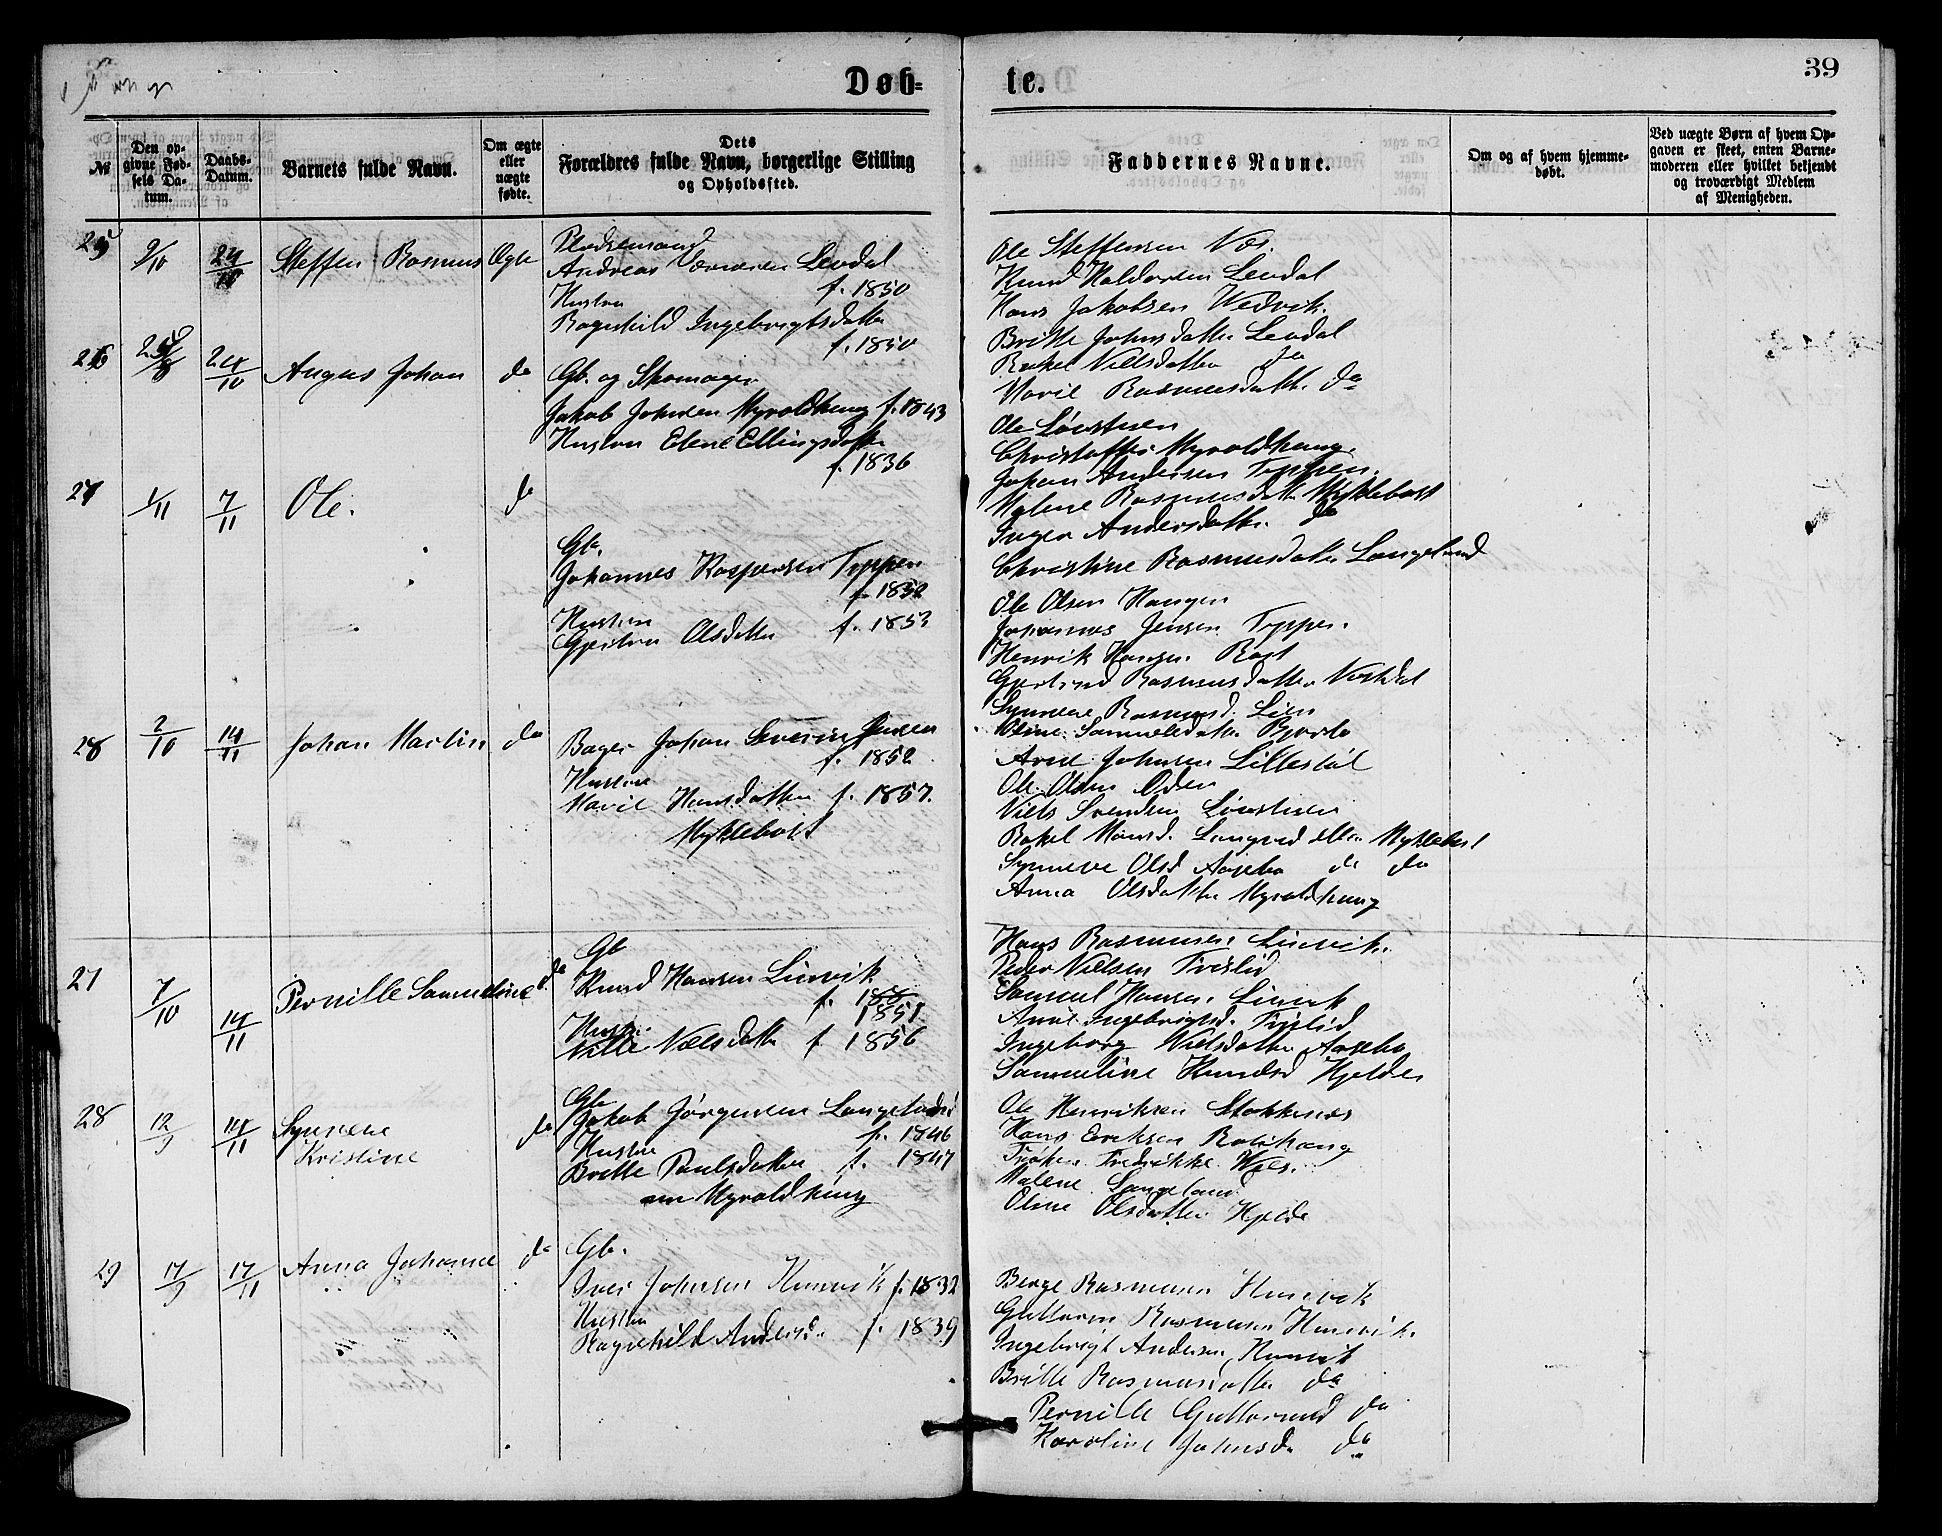 Døb=
te.
39
№
Den op-
givne Fød-
sels Da-
tum.
Daabs-
Datum.
Barnets fulde Navn.
Om ægte
eller
uægte
fødte.
Dets
Forældres fulde Navn, borgerlige Stilling
og Opholdssted.
Faddernes Navne.
Om og af hvem hjemme-
døbt.
Ved uægte Børn af hvem Op-
gaven er skeet, enten Barne-
moderen eller hvilket bekjendt
og troværdigt Medlem
af Menigheden.
25 9/10 24/10 Steffen Rasmus Ægte
Pladsemand
Andreas Levdal
f. 1850
Hustru
Ragnhild Ingebrigtsdatter
f. 1850
Ole Steffensen Næs.
Knud Haldorsen Levdal
Hans Jakobsen Wedvik.
Britte Johnsdatter Levdal
Rakel Nielsdatter do
Marie Rasmusdatter do
26 24/10 August Johan do
Gb. og Skomager
Jakob Johnsen Myroldhaug f. 1843
Hustru Elene Ellingsdatter
f. 1836
Ole Løvstuen
Christoffer Myroldhaug.
Johan Andersen Typpen.
Malene Rasmusdatter Myklebost
Inger Andersdatter do
Christine Rasmusdatter Langeland
27 1/11 7/11 Ole. do
Gb.
Johannes Kaspersen Typpen
f. 1852
Hustru
Gjertru Olsdatter f. 1853
Ole Olsen Haugen
Johannes Jensen Typpen.
Henrik Hansen
Gjertrud Rasmusdatter
Synneve Rasmusd. Lien
Oline Samuelsdatter
28 2/10 14/11 Johan Martin do
Bager Johan Severin Jensen
f. 1852
Hustru
Marie Hansdatter f. 1857.
Myklebost
Arne Johnsen Lillestøl
Ole Olsen Øden
Niels Svendsen Løvstuen
Rakel Monsd. Myklebost
Synneve Olsd Aasebø do do
Anna Olsdatter Myroldhaug
27 7/10 14/11 Pernille Samueline do
Gb
Knud Hansen Linvik
f. 1851.
Hustru
Nille Nielsdatter f 1856
Hans Rasmusen Linvik.
Peder Nielsen Frislid
Samuel Hansen Linvik
Anne Ingebrigtsd. Frislid
Ingeborg Nielsdatter Aasebø
Samueline Knudsd Hjelde
28 12/9 14/11 Synneve
Kristine do
Gb
Jakob Jørgensen Langeland
f. 1846
Hustru
Britte Paulsdatter f. 1847
Myroldhaug
Ole Henriksen Stokkenes
Hans Eriksen
Frøken Fredrikke
Malene Langeland
Oline Olsdatter Hjelde
29 17/9 17/11 Anna Johanne do
Gb.
Iver Johnsen Hunvik f. 1832
Hustru
Ragnhild Andersd. f. 1839
Berge Rasmusen Hunvik
Guttorm Rasmusen Hunvik.
Ingebrigt Andersen Hunvik
Britte Rasmusdatter do
Pernille Guttormsd do
Karoline Johnsd do